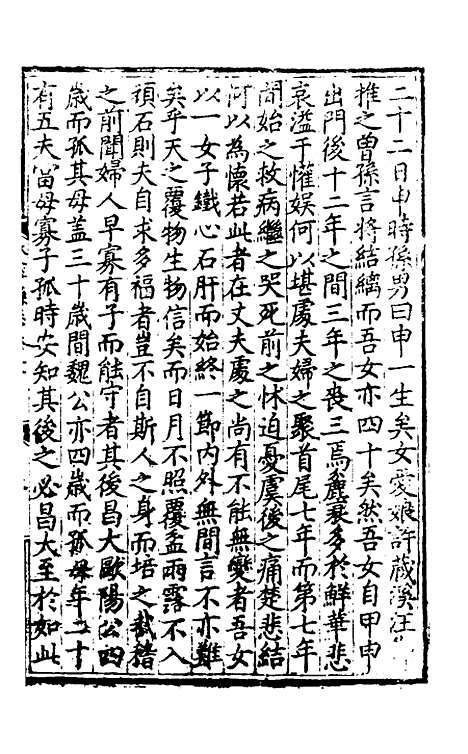 二十二日申時孫男曰申一生矣女愛娘許藏溪汪
推之曾孫言將結縭而吾女亦四十矣然吾女自甲申
出門後十二年之間三年之喪三焉麤衰多於鮮華悲
哀溢于懽娱何以堪處夫婦之聚首尾七年而第七年
間始之救病繼之哭死前之怵迫憂虞後之痛楚悲結
何以為懷若此者在丈夫處之尚有不能無變者吾女
以一女子鐵心石肝而始終一節内外無間言不亦難
矣乎天之覆物生物信矣而日月不照覆盆雨露不入
頑石則夫自求多福者豈不自斯人之身而培之哉稽
之前聞婦人早寡有子而能守者其後昌大歐陽公四
歳而孤其母盖三十歳間魏公亦四歳而孤母年二十
有五夫當母寡子孤時安知其後之必昌大至於如此